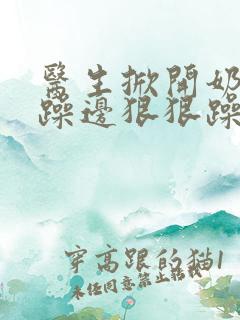 醫生掀開奶
躁邊狠狠躁
穿高跟的猫1
未任同意禁止轉載